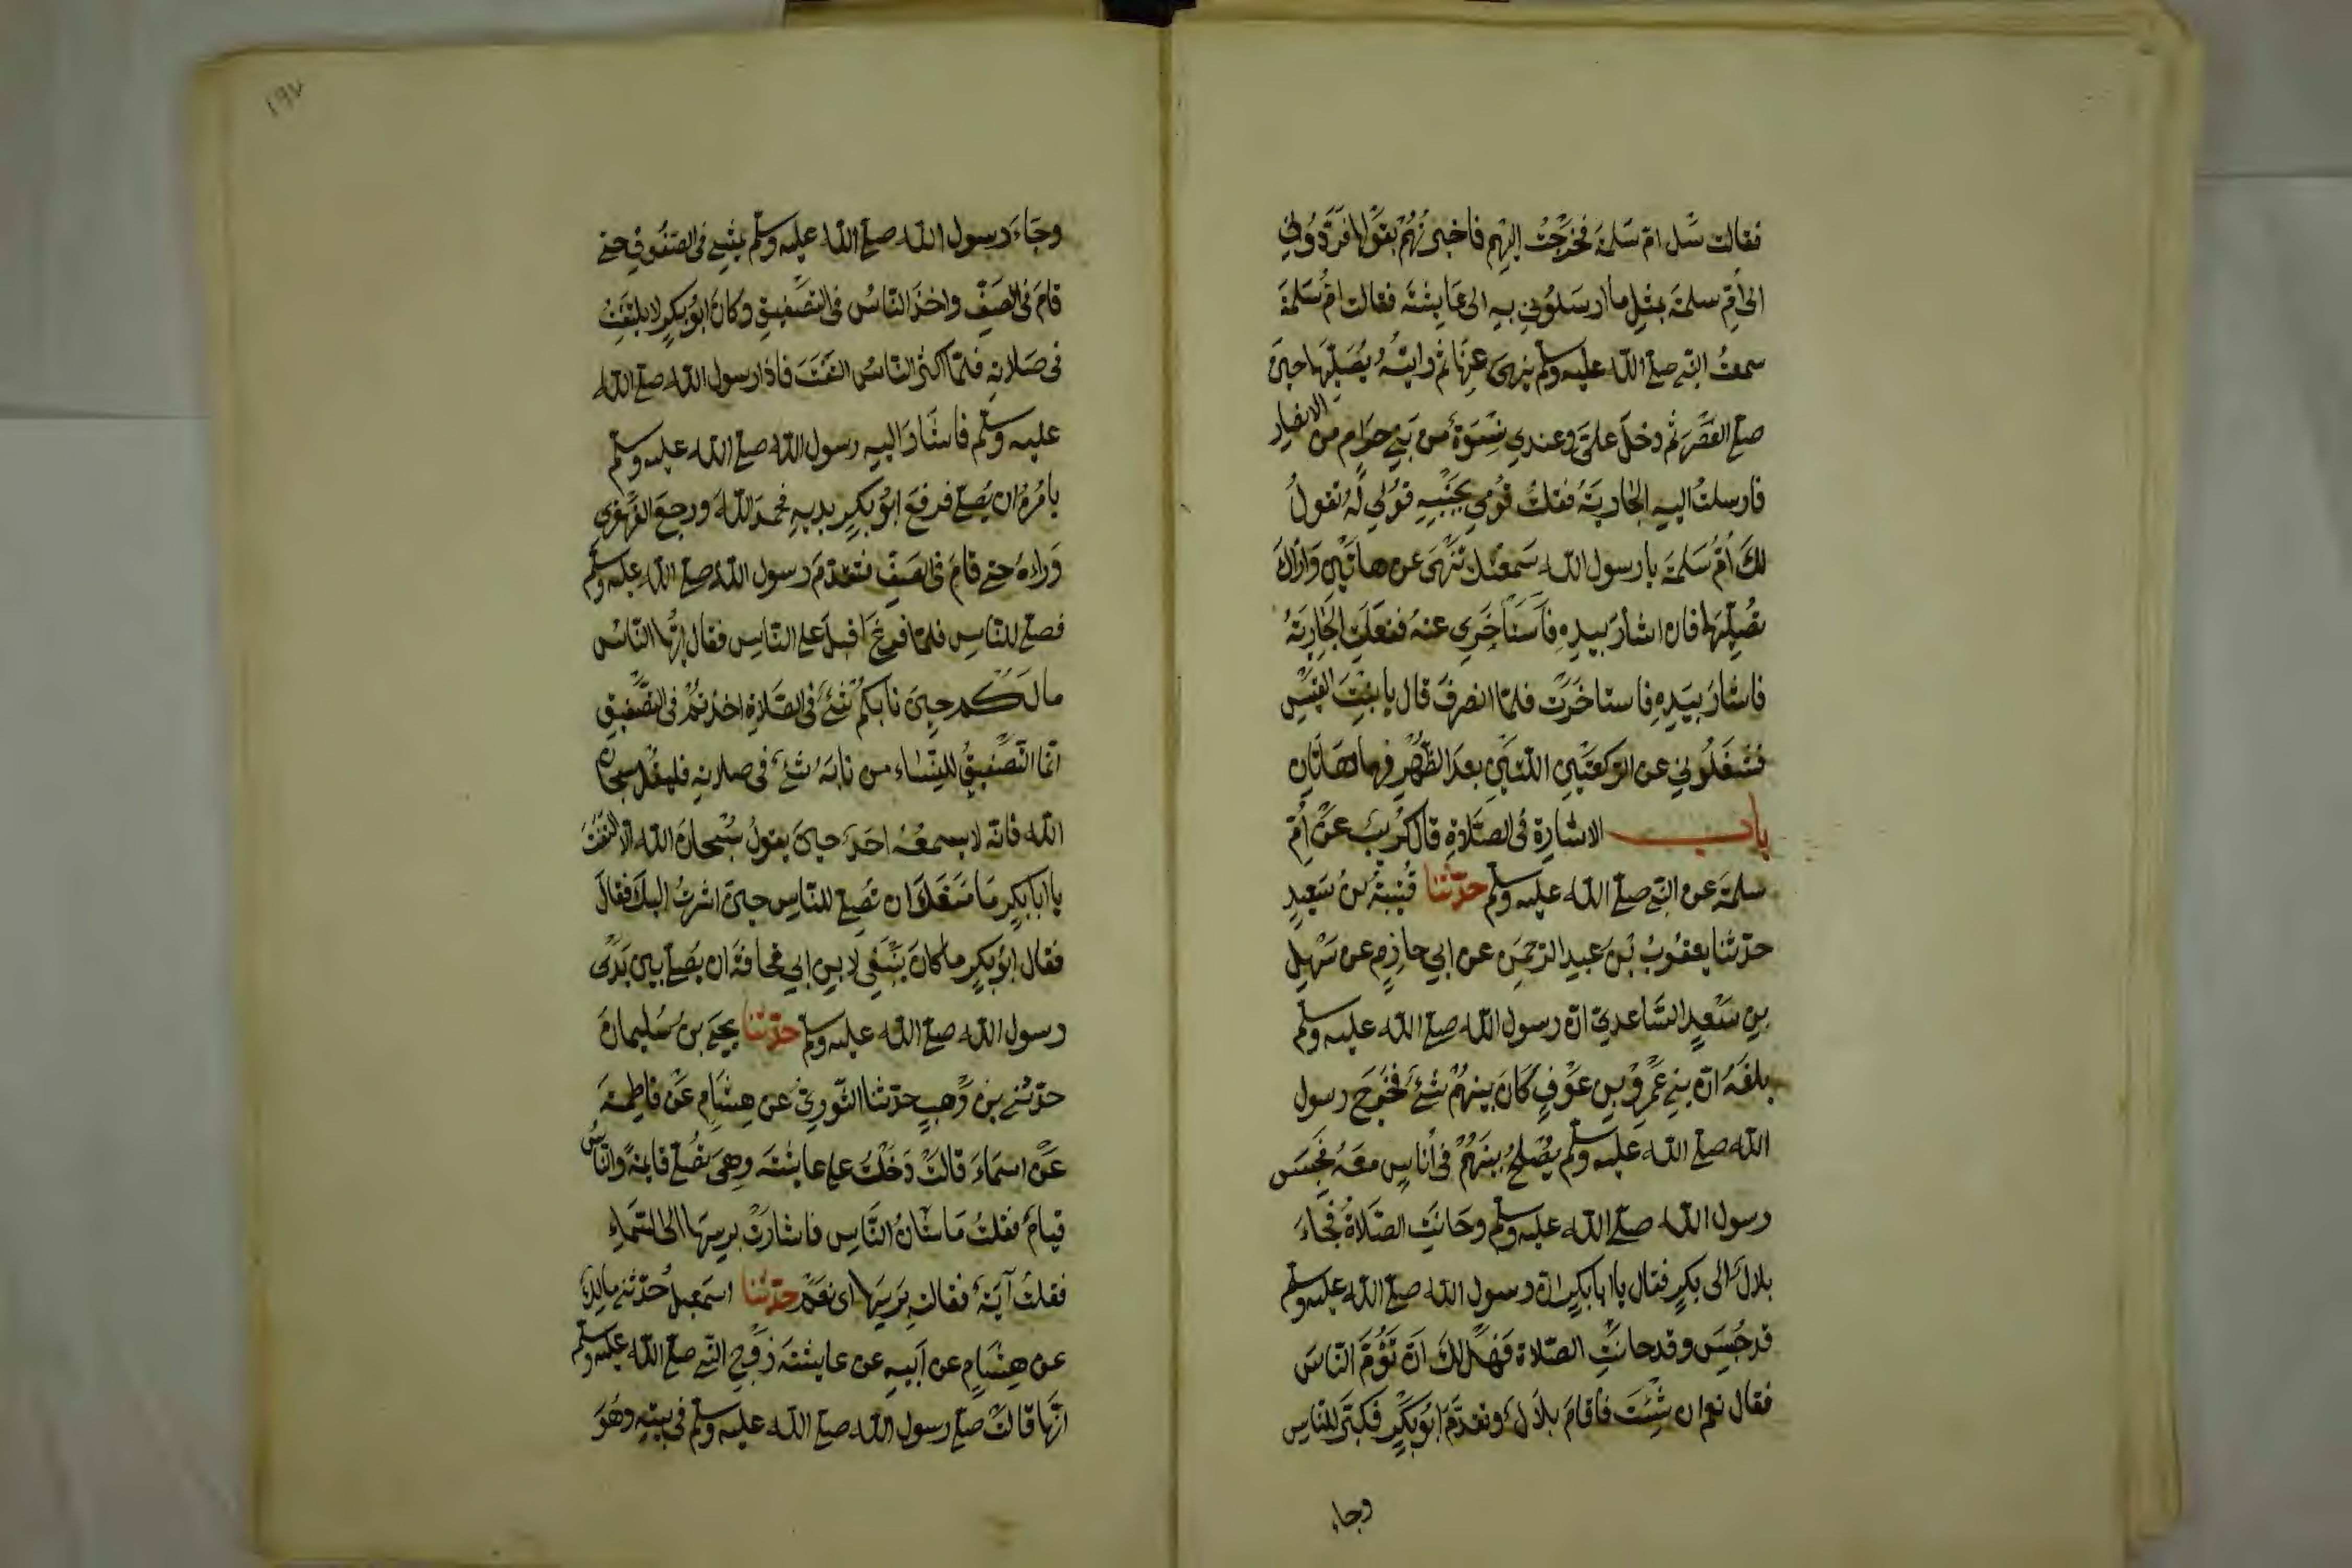 فقالت سَل امّ سَلمَة فخرَجْتُ إليهم فاخبرتُهُمْ بقَوْلها فَرَدُّوني
الى أُمِّ سلمَة بمثلِ ما ارسَلُوني به الى عَايِشَة فقالت امُّ سَلمَة
سمعتُ النبي صلى الله عليه وسلم ينهى عنها ثم رايتُهُ يُصَلّيها حينَ
صلى العَصْرَ ثم دخلَ علىَّ وعندي نِسْوَةٌ من بَني حرَامٍ من الانصار
فارسلتُ اليهِ الجَاريَةَ فقلتُ قُومي بجَنْبِهِ قُولي لَهُ تقولُ
لكَ أُمُّ سَلمَة يا رسول الله سَمعتُك تَنْهَى عن هاتَيْنِ وَأراكَ
تُصَلّيهَا فان اشارَ بيدِهِ فاسْتَأخِرِي عنهُ ففعلَتِ الجَاريَةُ
فاشارَ بيَدِهِ فاستاخَرَت فلمّا انصرفَ قال يا بنتَ
فشَغَلُوني عن الركعَتَيْنِ اللّتَيْنِ بعدَ الظُهْرِ فهما هَاتَانِ
باب الاشارة فى الصَّلاةِ قال كُرَيبٌ عَنْ أُمِّ
سلمَة عن النبي صلى الله عليه وسلم حدّثنا قُتَيبةُ بنُ سَعيدٍ
حدّثنا يعقُوبُ بْنُ عبدِ الرّحمَنِ عن ابي حازمٍ عن سَهْلِ
بنِ سَعْدٍ السَّاعديّ انّ رسول الله صلى الله عليه وسلم
بلغَهُ انّ بني عَمْرِو بنِ عَوْفٍ كَانَ بينهُمْ شئٌ فخرَجَ رسول
الله صلى الله عليه وسلم يُصْلِحُ بينَهُمْ فى أُناسٍ معَهُ فحُبسَ
رسول الله صلى الله عليه وسلم وحَانَتِ الصَّلاةُ فجَاءَ
بلالٌ الى بكرٍ فقال يا ابا بكرٍ انّ رسول الله صلى الله عليه وسلم
قد حُبسَ وقد حانَتِ الصّلاة فَهَلْ لكَ انْ تَؤُمَّ النّاسَ
فقال نعم ان شِئتَ فأقامَ بلالٌ وتقدّمَ أبُو بَكْرٍ فكبّرَ للنّاسِ
وجاء
١٩٧
وجَاءَ رسول الله صلى الله عليه وسلم يمشِي فى الصّفُوفِ حتى
قامَ فى الصَفِّ واخذَ النّاسُ فى التصْفيقِ وكانَ ابُو بكرٍ لا يلتفِتُ
فى صَلاتِهِ فلمّا اكثر النّاسُ التفَتَ فاذا رسول الله صلى الله
عليه وسلم فاشَارَ اليه رسول الله صلى الله عليه وسلم
يامُرُهُ ان يُصلّي فرفعَ ابُو بكرٍ يديهِ فحمدَ اللهَ ورجعَ القهقرى
وَراءهُ حتى قامَ فى الصَفِّ فتقدّمَ رسول الله صلى الله عليه وسلم
فصلى للنّاسِ فلمّا فرغَ اقبلَ على النّاسِ فقال ايُّها النّاسُ
ما لَكُم حينَ نابكُمْ شئٌ فى الصّلاةِ اخذتُمْ فى التّصْفيق
انّما التّصْفيقُ للنِّسَاء من نابَهُ شئٌ فى صلاتهِ فليقُل سبحان
الله فانّه لا يسمعُهُ احَدٌ حينَ يقولُ سُبْحانَ الله الّا التفَتَ
يا ابا بَكرٍ مَا مَنعَكَ ان تُصَلّي للنّاسِ حينَ اشرتُ اليكَ فقالَ
فقال ابُو بكرٍ ما كانَ يَنْبَغي لابنِ ابي قحافةَ ان يصَلّي بين يَدَى
رسول الله صلى الله عليه وسلم حدّثنا يحيَى بنُ سُليمانَ
حدّثني بنُ وَهبٍ حدّثنا الثّوريُّ عن هشَامٍ عَنْ فاطِمةَ
عَنْ اسمَاءَ قالتْ دَخَلْتُ على عايشَة وهىَ تُصَلّي قايمَةً والنّاسُ
قيامٌ فقلتُ مَا شَانُ النَّاسِ فاشارَتْ برِسِهَا الى السّمَاءِ
فقلتُ آيَةٌ فقالت بَرَسِهَا اى نعَمْ حدّثنا اسمعيلُ حدّثني مالِكٌ
عن هِشَامٍ عن أبيهِ عن عايشَة زَوْجِ النبي صلى الله عليه وسلم
انّها قالتْ صلى رسول الله صلى الله عليه وسلم فى بيتِهِ وهُوَ